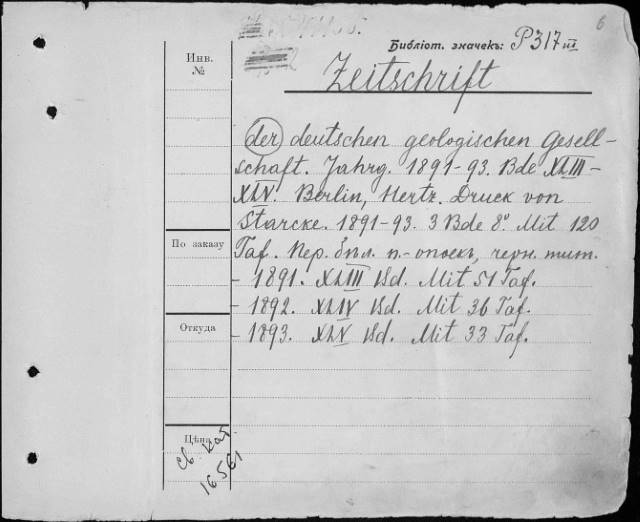 6
Библіот. значекъ: P317 III
Инв.
№
Zeitschrift
der deutschen geologischen Gesell-
schaft. Jahrg. 1891-93. Bde XLIII-
XLV. Berlin, Hertz. Druck von
Starcke. 1891-93. 3 Bde 8°. Mit 120
По заказу
Taf. Пер. бпл. п.-опоекъ, черн. тит.
- 1891. XLIII Bd. Mit 51 Taf.
- 1892. XLIV Bd. Mit 36 Taf.
Откуда
- 1893. XLV Bd. Mit 33 Taf.
Цѣна
Св. кат
16561